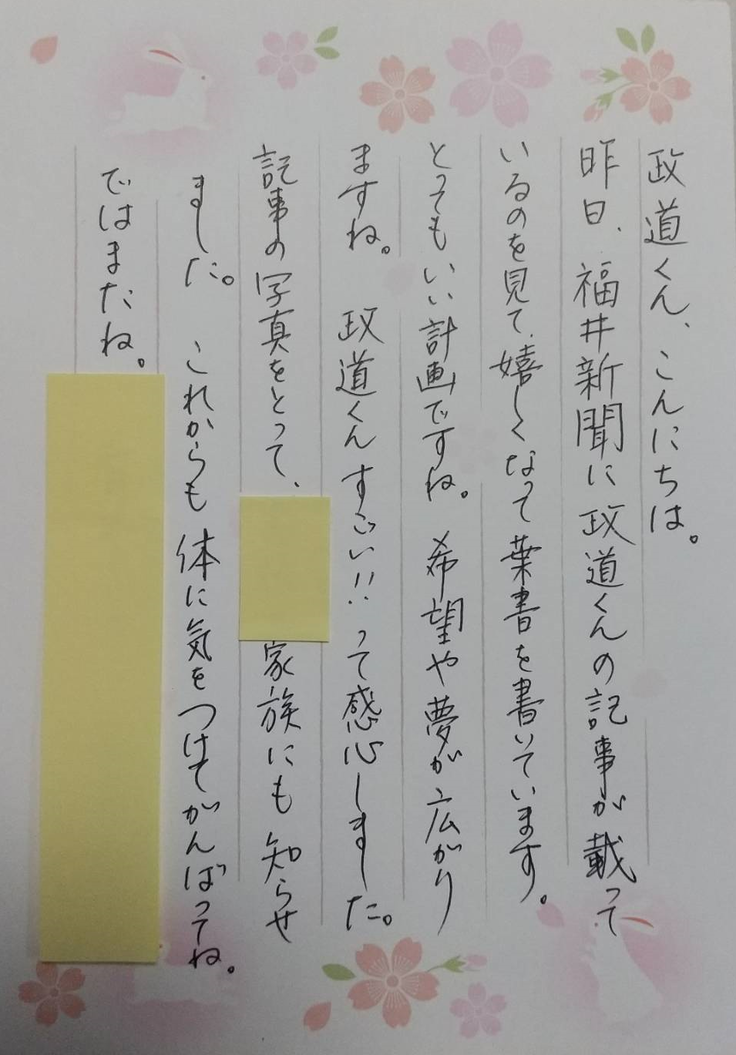 政道くん、こんにちは。
昨日、福井新聞に政道くんの記事が載って
いるのを見て、嬉しくなって葉書を書いています。
とってもいい計画ですね。希望や夢が広がり
ますね。政道くんすごい!!って感心しました。
記事の写真をとって、家族にも知らせ
ました。これからも体に気をつけてがんばってね。
ではまたね。